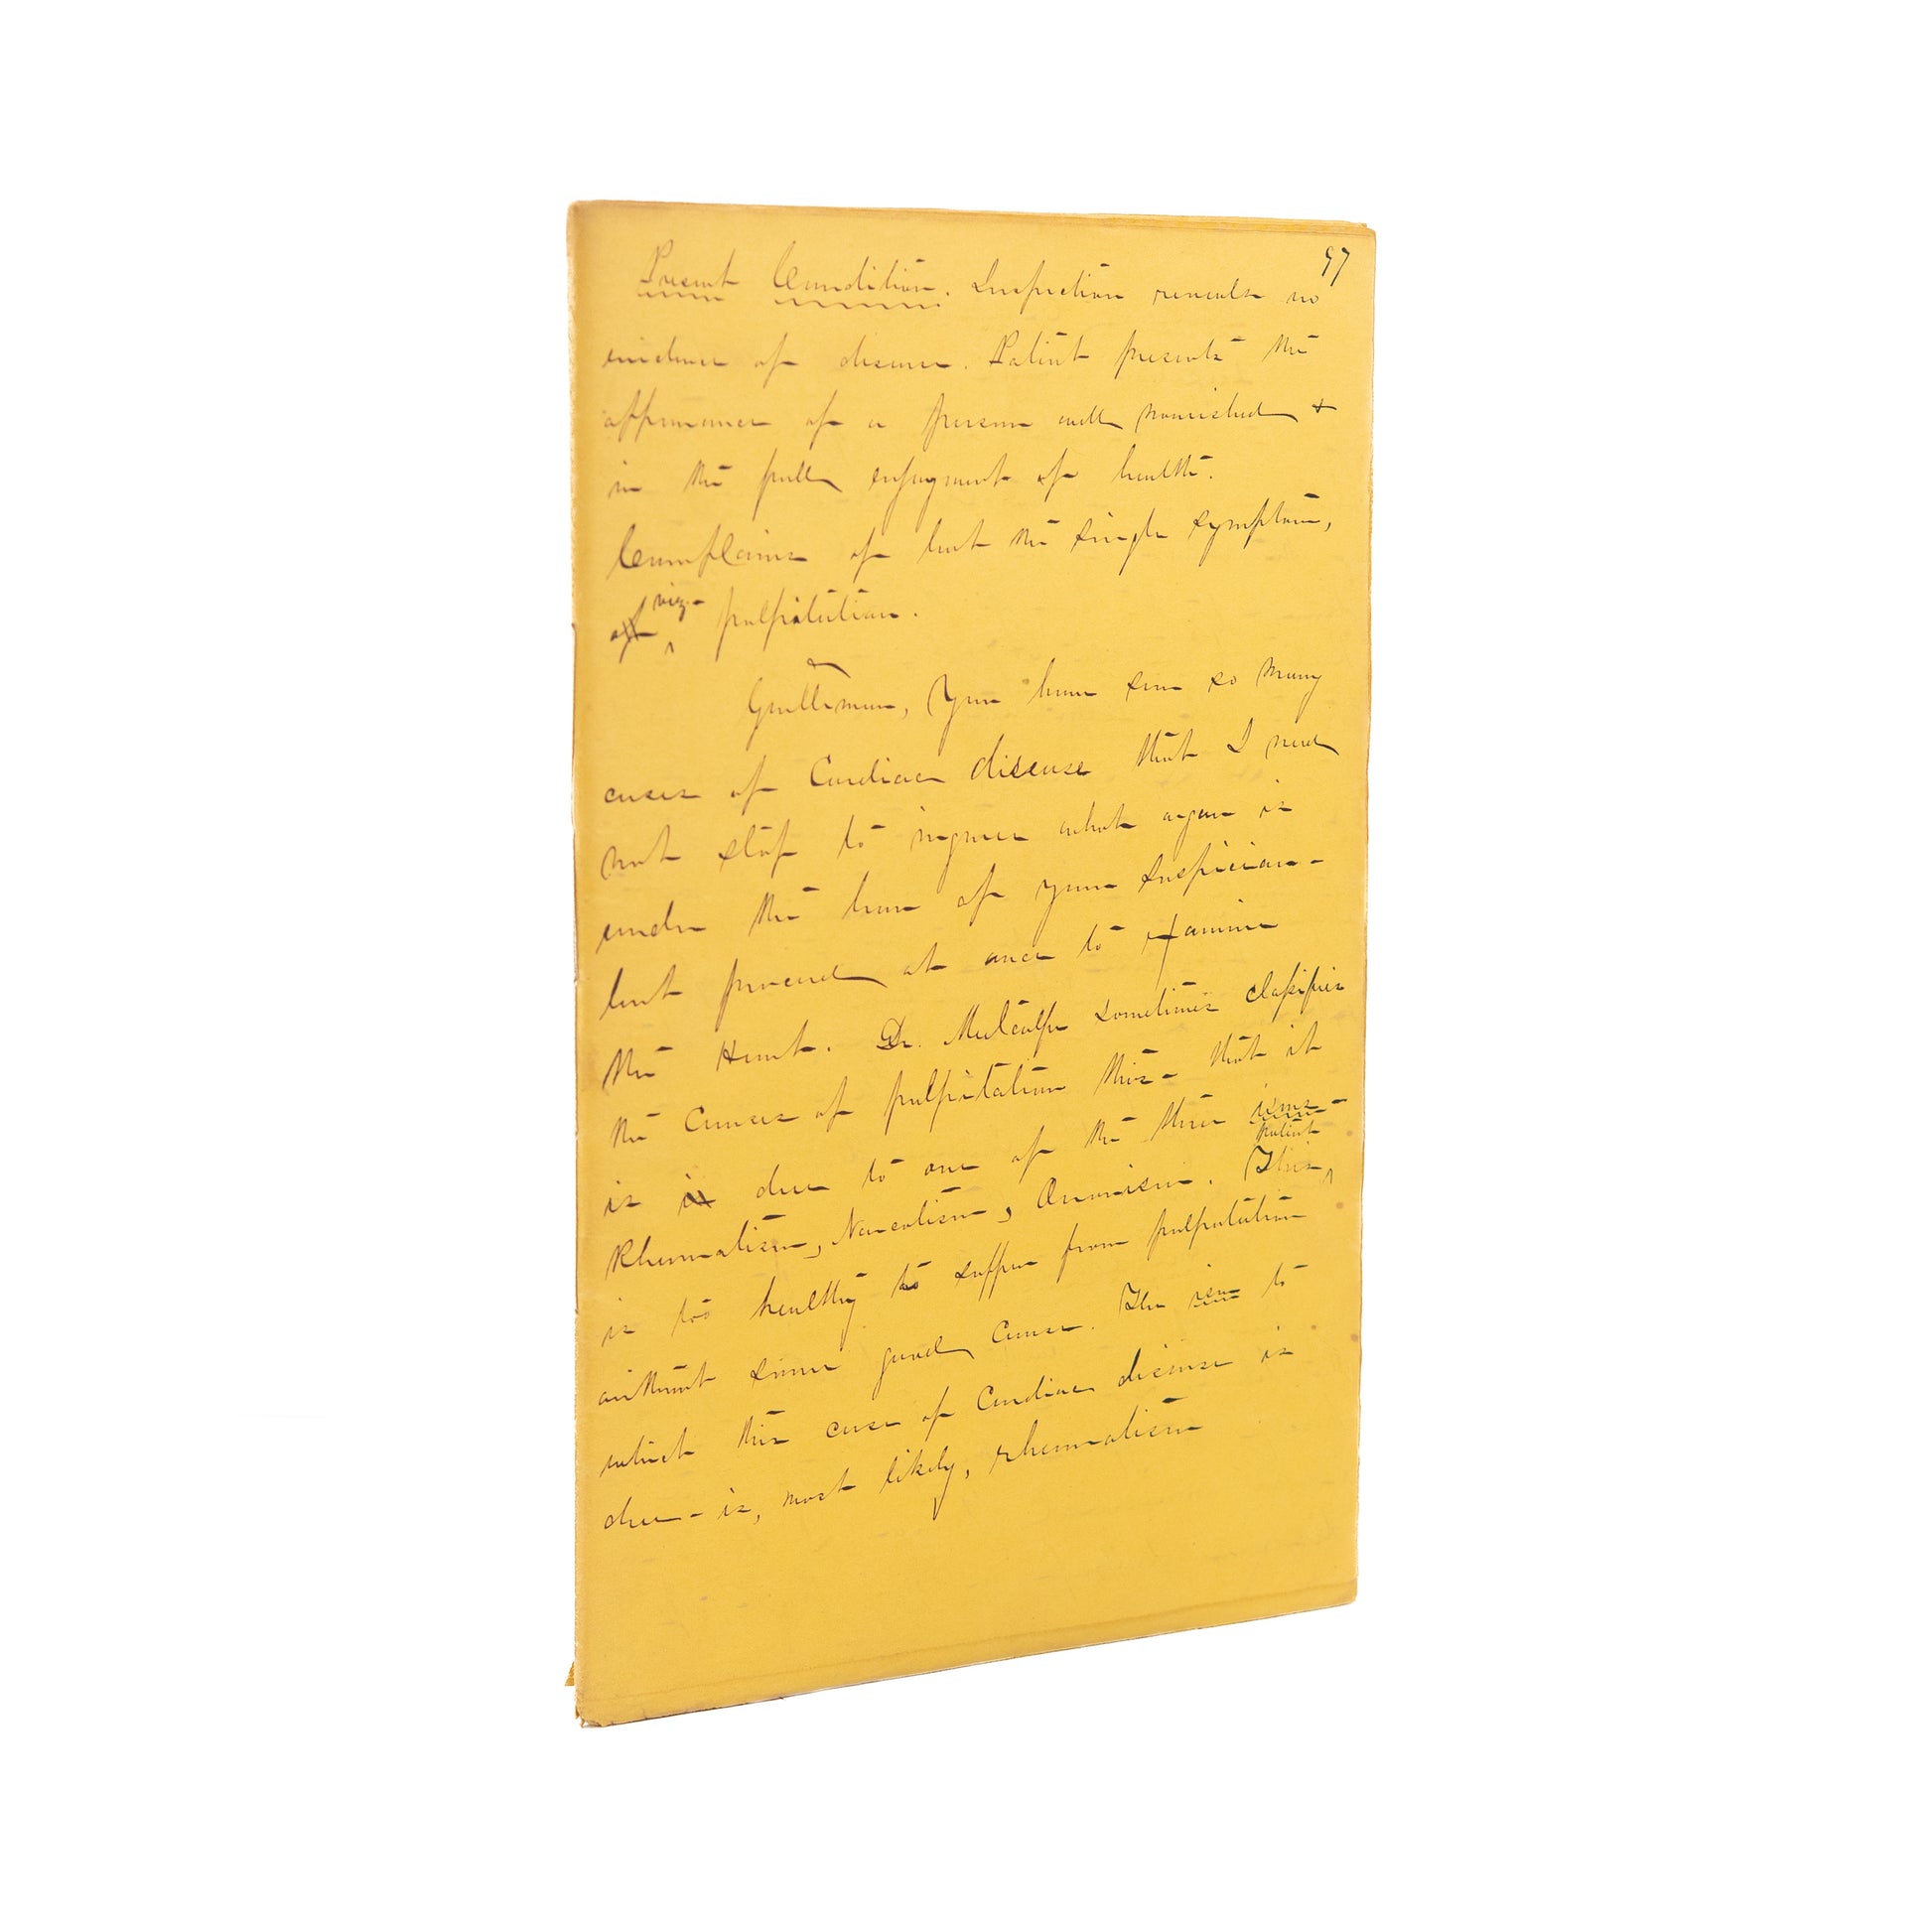 97
Present Condition. Inspection reveals no
evidence of disease. Patient presents the
appearance of a person well nourished +
in the full enjoyment of health.
Complains of but the single symptom,
of viz- palpitation.
Gentlemen, You have seen so many
cases of Cardiac disease that I need
not stop to inquire what organ is
under the ban of your suspicion-
but proceed at once to examine
the Heart. Dr. Metcalfe sometimes classifies
the Causes of palpitation this- that it
is is due to one of the three isms-
Rheumatism, Narcotism, Onanism. This patient
is too healthy to suffer from palpitation
without some good Cause. The ism to
which this case of Cardiac disease is
due- is, most likely, rheumatism